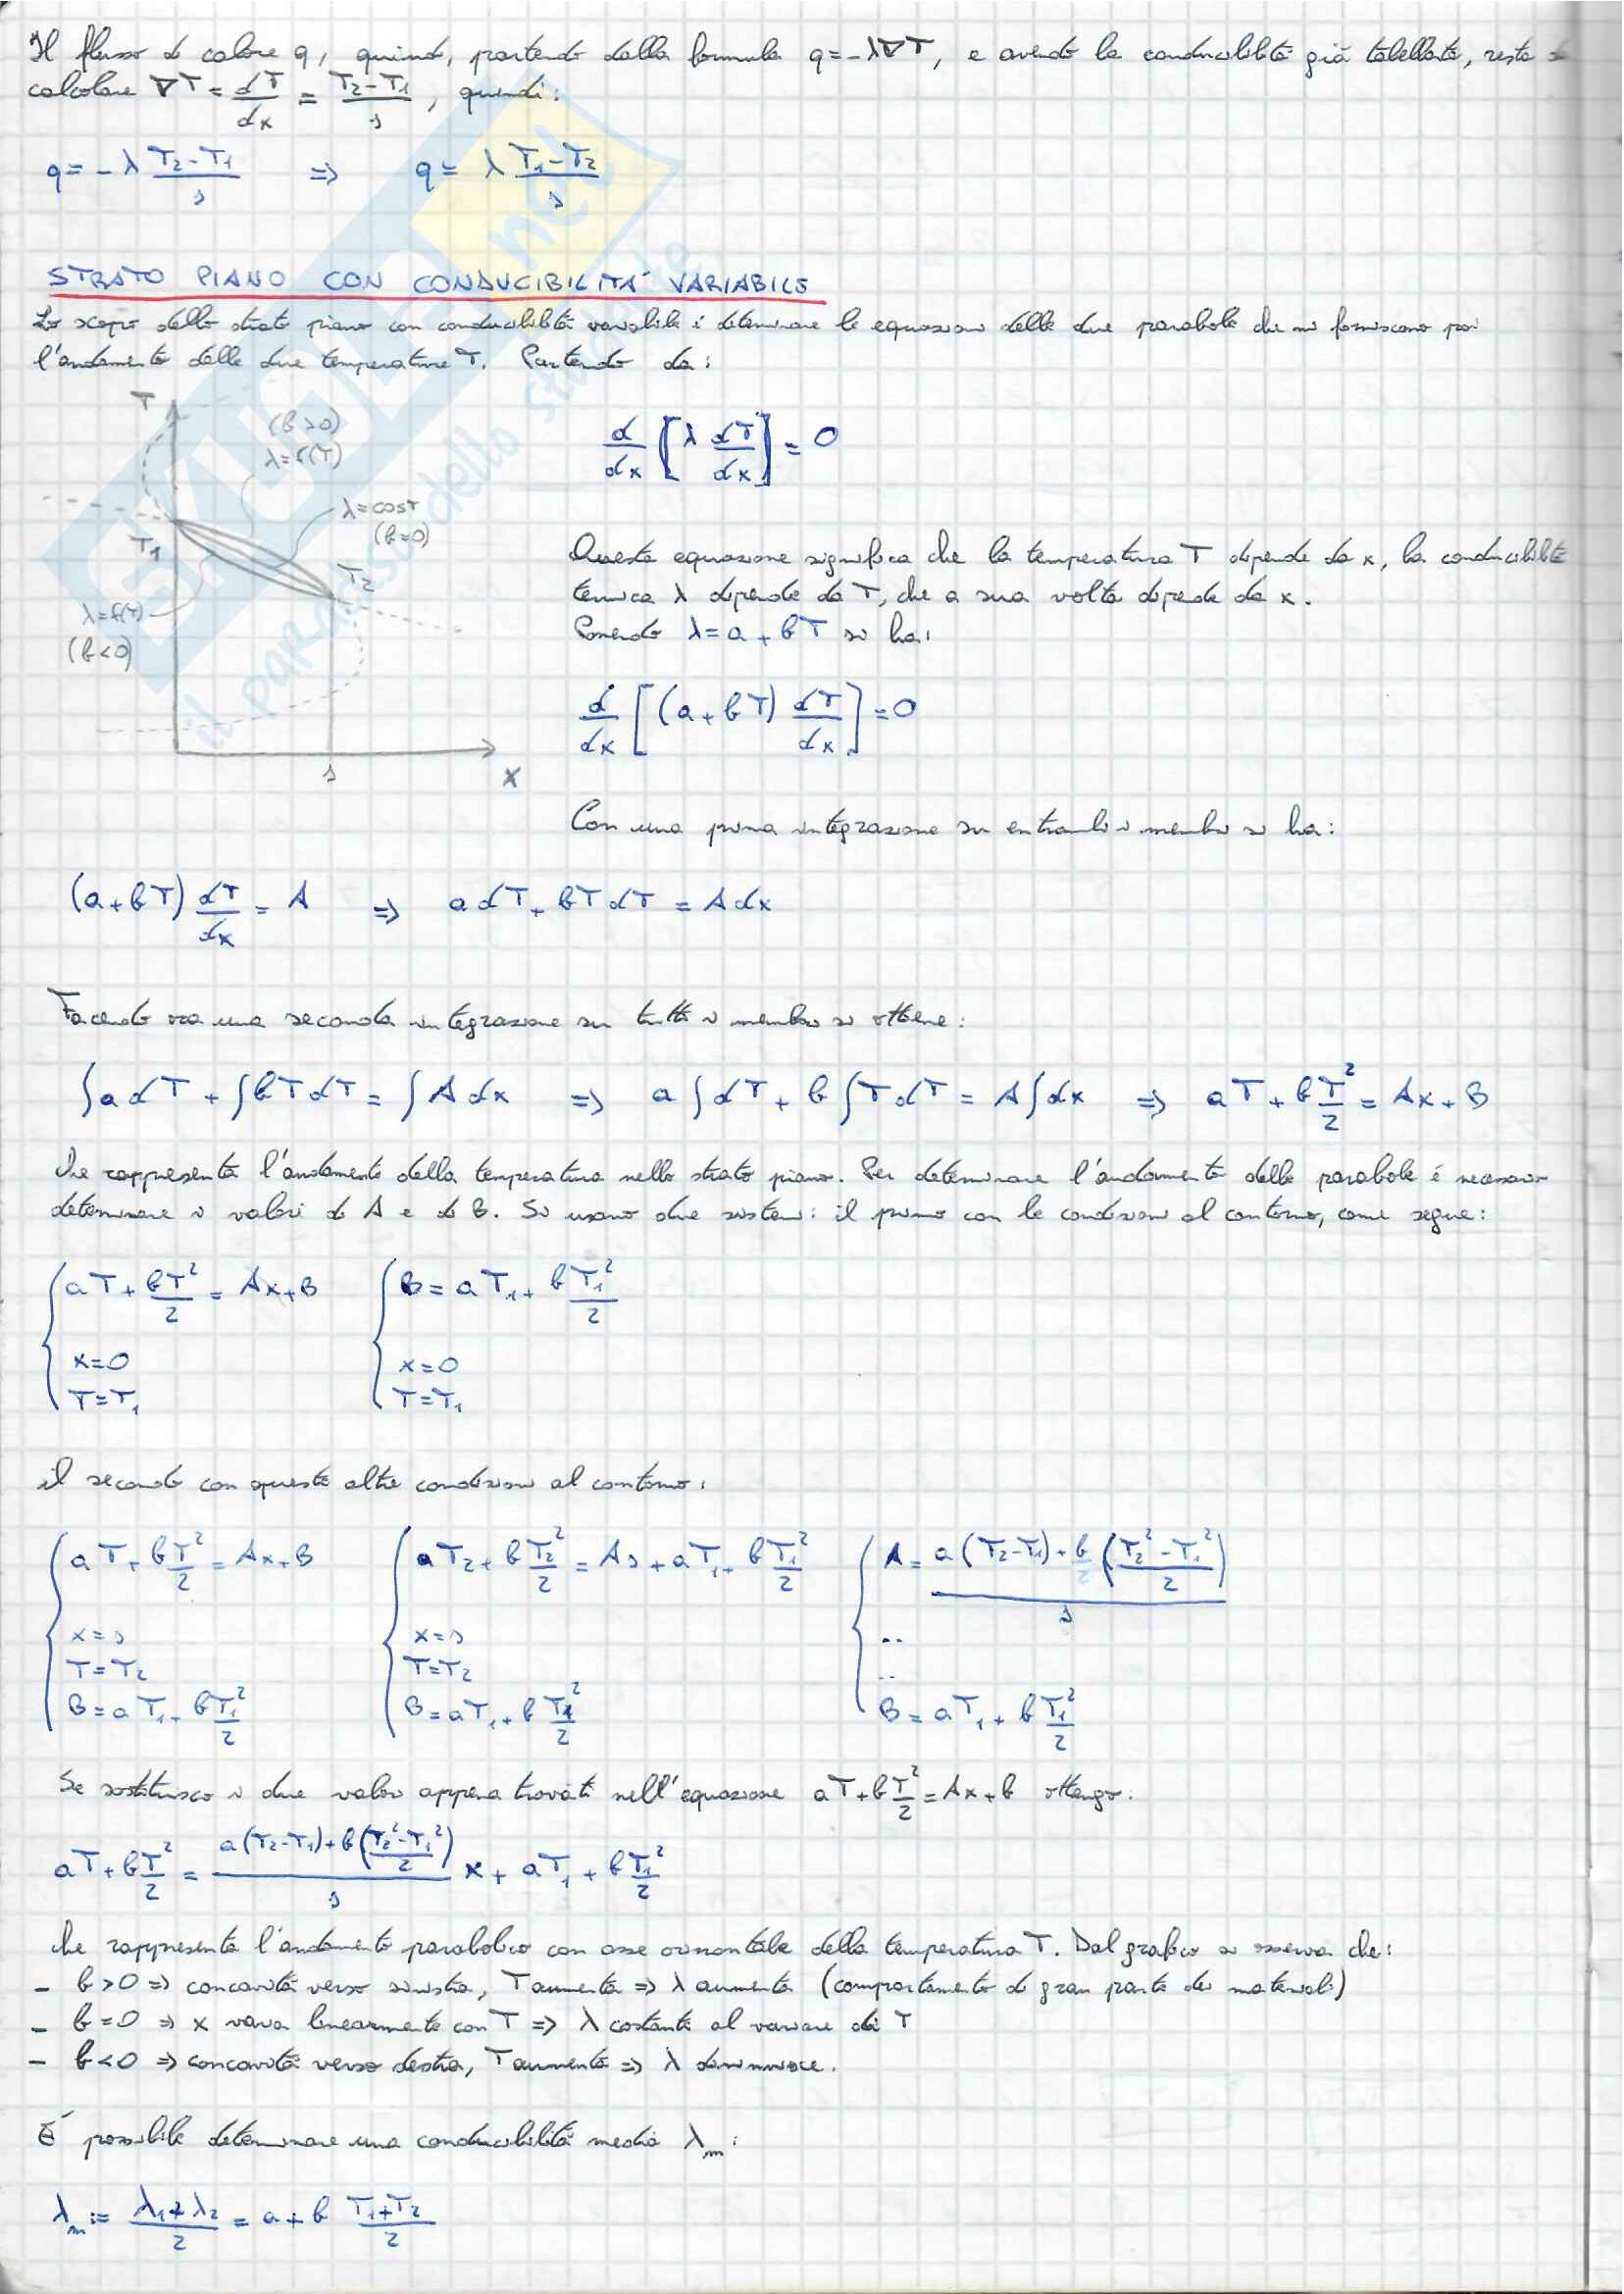 Il flusso di calore q, quindi, partendo dalla formula q=-λ∇T, e avendo la conducibilità già tabellata, resta da
calcolare ∇T = dT/dx = (T₂-T₁)/s, quindi:
q = -λ (T₂-T₁)/s ⇒ q = λ (T₁-T₂)/s
STRATO PIANO CON CONDUCIBILITA' VARIABILE
Lo scopo dello strato piano con conducibilità variabile è determinare le equazioni delle due parabole che mi forniscono poi
l'andamento delle due temperature T. Partendo da:
T
(b>0)
λ=f(T)
λ=cost
(b=0)
T₁
T₂
λ=f(T)
(b<0)
s
x
d/dx [λ dT/dx] = 0
Questa equazione significa che la temperatura T dipende da x, la conducibilità
termica λ dipende da T, che a sua volta dipende da x.
Ponendo λ=a+bT si ha:
d/dx [(a+bT) dT/dx] = 0
Con una prima integrazione su entrambi i membri si ha:
(a+bT) dT/dx = A ⇒ a dT + bT dT = A dx
Facendo ora una seconda integrazione su tutti i membri si ottiene:
∫a dT + ∫bT dT = ∫A dx ⇒ a∫dT + b∫T dT = A∫dx ⇒ aT + b T²/2 = Ax+B
che rappresenta l'andamento della temperatura nello strato piano. Per determinare l'andamento delle parabole è necessario
determinare i valori di A e di B. Si usano due sistemi: il primo con le condizioni al contorno, come segue:
{ aT + bT²/2 = Ax+B { B = aT₁ + bT₁²/2
x=0 x=0
T=T₁ T=T₁
il secondo con queste altre condizioni al contorno:
{ aT + b T²/2 = Ax+B { aT₂ + b T₂²/2 = As + aT₁ + b T₁²/2 { A = (a(T₂-T₁) + b/2 ((T₂²-T₁²)/2))/s
x=s x=s ..
T=T₂ T=T₂ ..
B = aT₁ + bT₁²/2 B = aT₁ + b T₁²/2 B = aT₁ + b T₁²/2
Se sostituisco i due valori appena trovati nell'equazione aT+b T²/2 = Ax+b ottengo:
aT + b T²/2 = (a(T₂-T₁) + b((T₂²-T₁²)/2))/s x + aT₁ + b T₁²/2
che rappresenta l'andamento parabolico con asse orizzontale della temperatura T. Dal grafico si osserva che:
- b>0 ⇒ concavità verso sinistra, T aumenta ⇒ λ aumenta (comportamento di gran parte dei materiali)
- b=0 ⇒ x varia linearmente con T ⇒ λ costante al variare di T
- b<0 ⇒ concavità verso destra, T aumenta ⇒ λ diminuisce.
È possibile determinare una conducibilità media λₘ:
λₘ := (λ₁+λ₂)/2 = a + b (T₁+T₂)/2